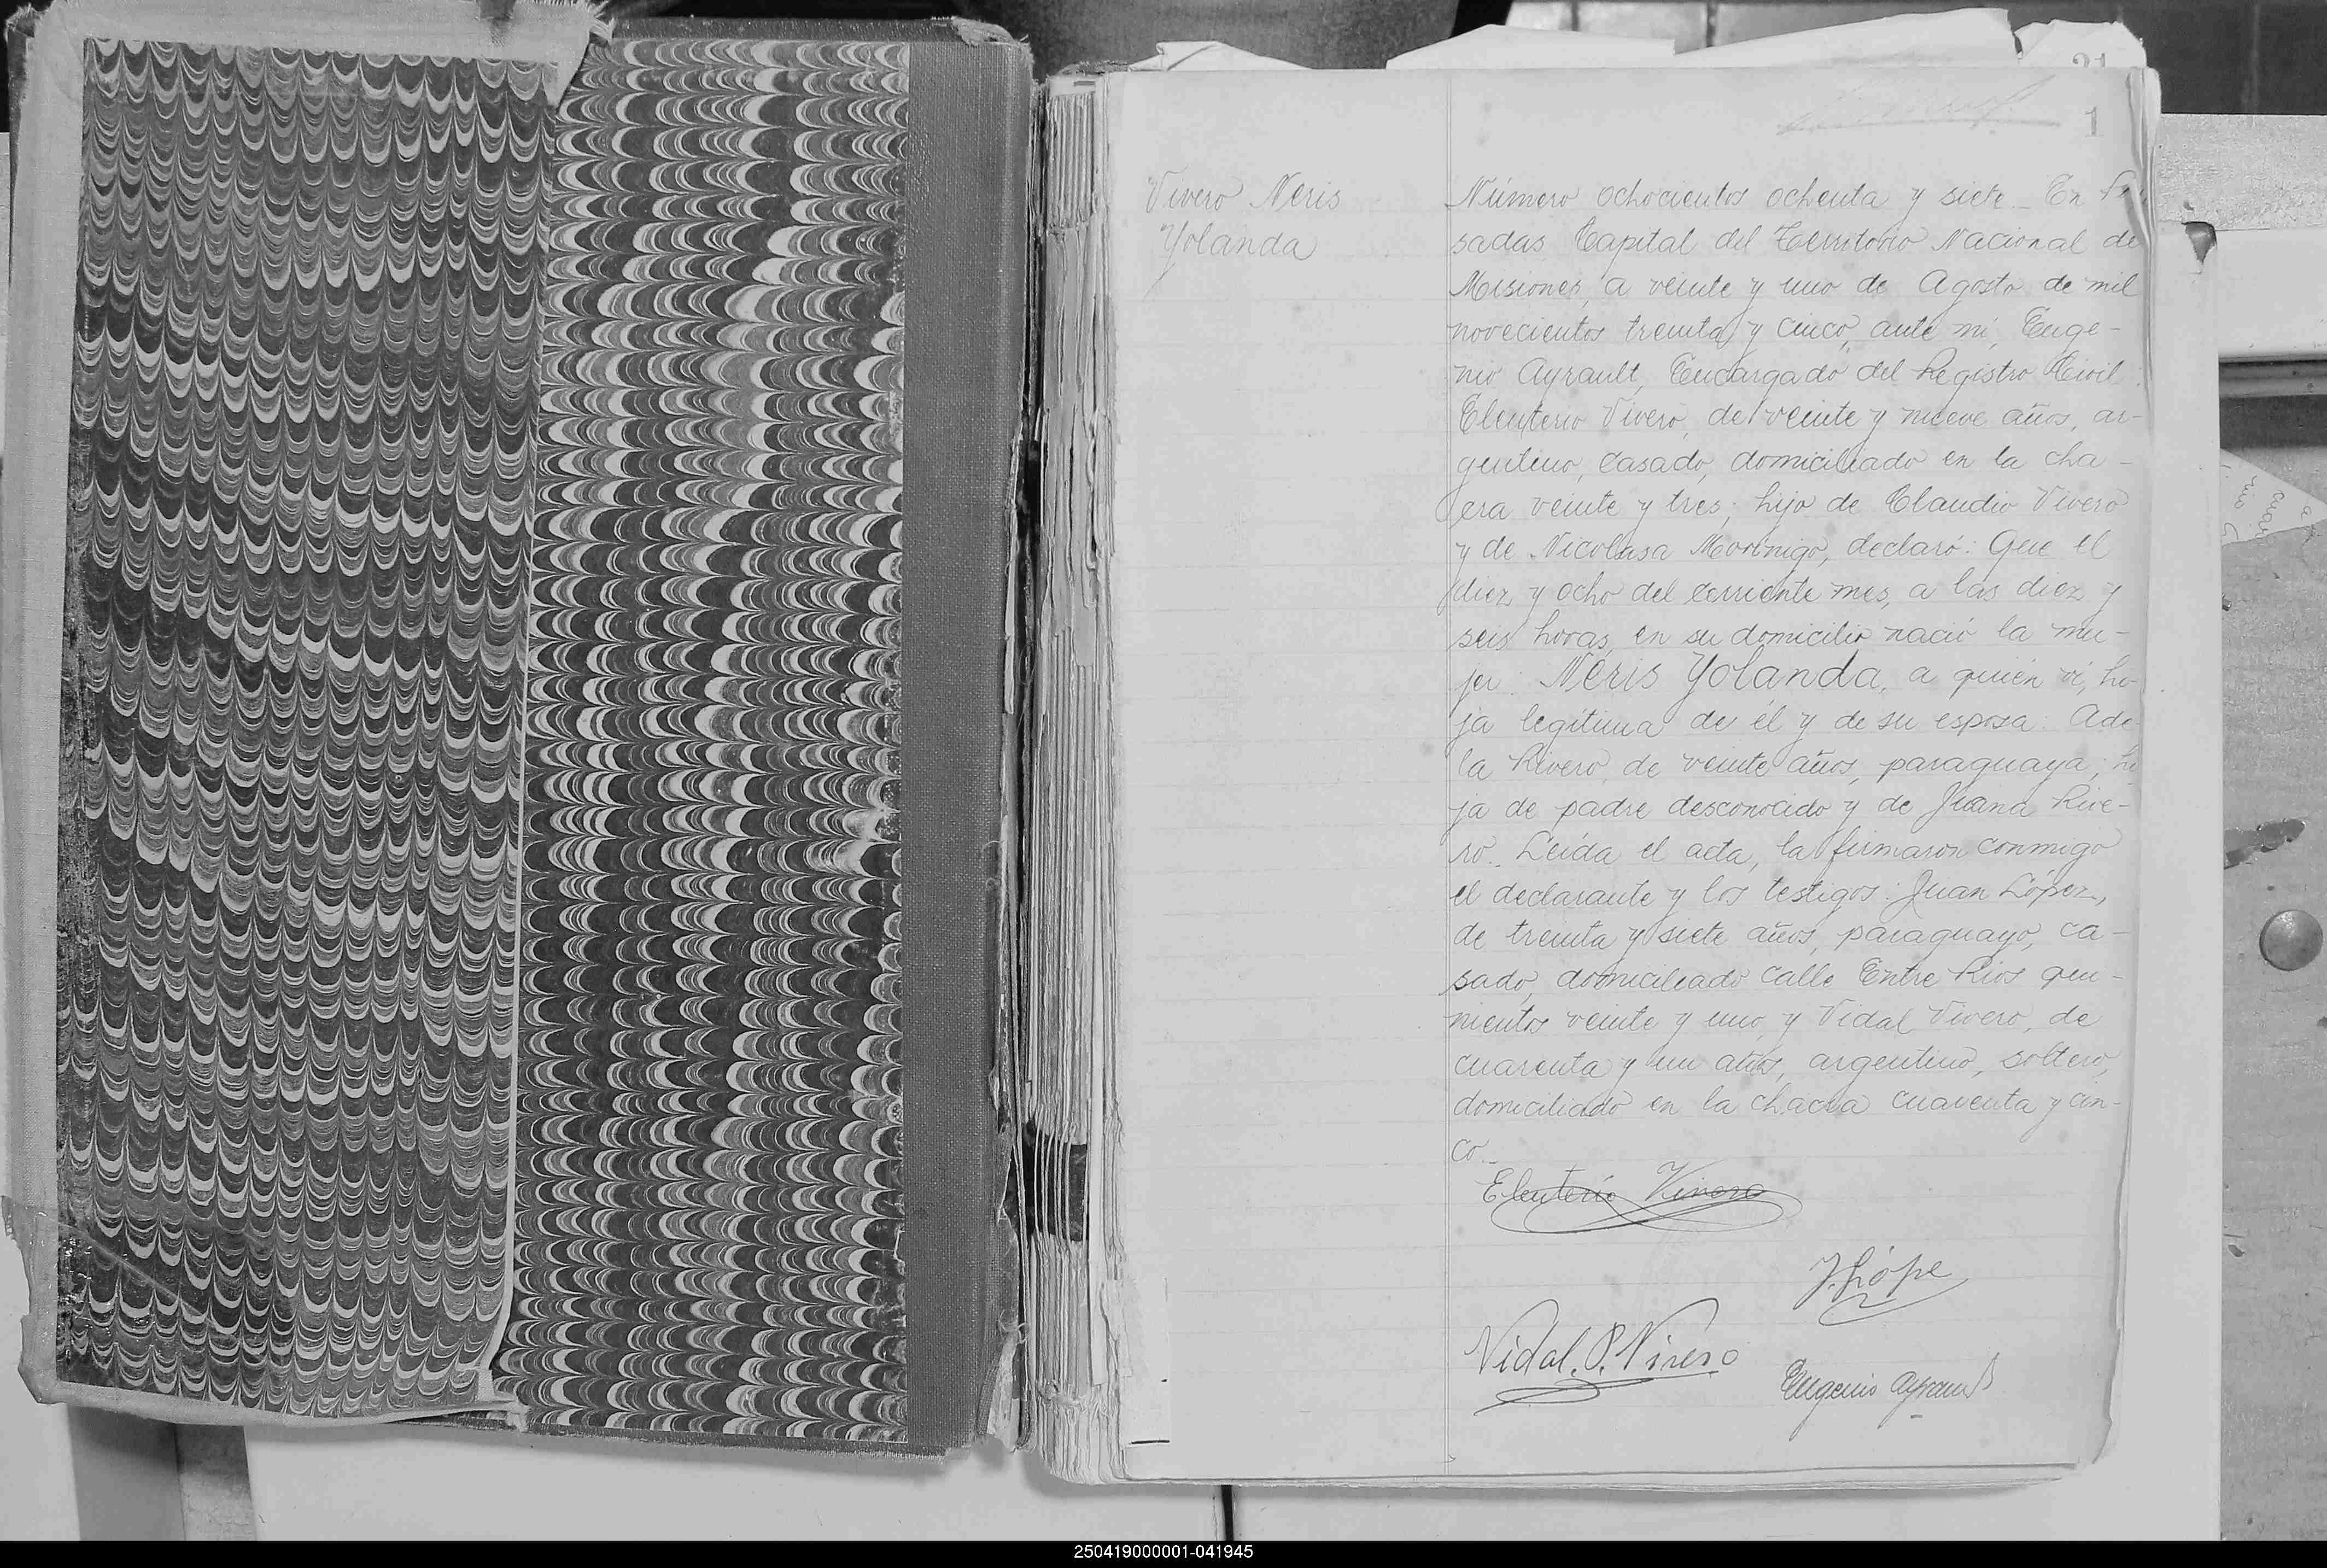 1
Vivero Neris
Yolanda
Número ochocientos ochenta y siete._ En Po
sadas Capital del Territorio Nacional de
Misiones, a veinte y uno de Agosto de mil
novecientos treinta y cinco, ante mí, Euge-
nio Ayrault, Encargado del Registro Civil:
Eleuterio Vivero, de veinte y nueve años, ar-
gentino, casado, domiciliado en la cha-
cra veinte y tres; hijo de Claudio Vivero
y de Nicolasa Morínigo, declaró: Que el
diez y ocho del corriente mes, a las diez y
seis horas, en su domicilio nació la mu-
jer: Neris Yolanda, a quién ví, hi-
ja legítima de él y de su esposa: Ade
la Rivero, de veinte años, paraguaya; hi
ja de padre desconocido y de Juana Rive-
ro._ Leída el acta, la firmaron conmigo
el declarante y los testigos: Juan López,
de treinta y siete años, paraguayo, ca-
sado, domiciliado calle Entre Ríos qui-
nientos veinte y uno, y Vidal Vivero, de
cuarenta y un años, argentino, soltero,
domiciliado en la chacra cuarenta y cin-
co._
Eleuterio Vivero
J. Lópe
Vidal. P. Vivero
Eugenio Ayrault
250419000001-041945